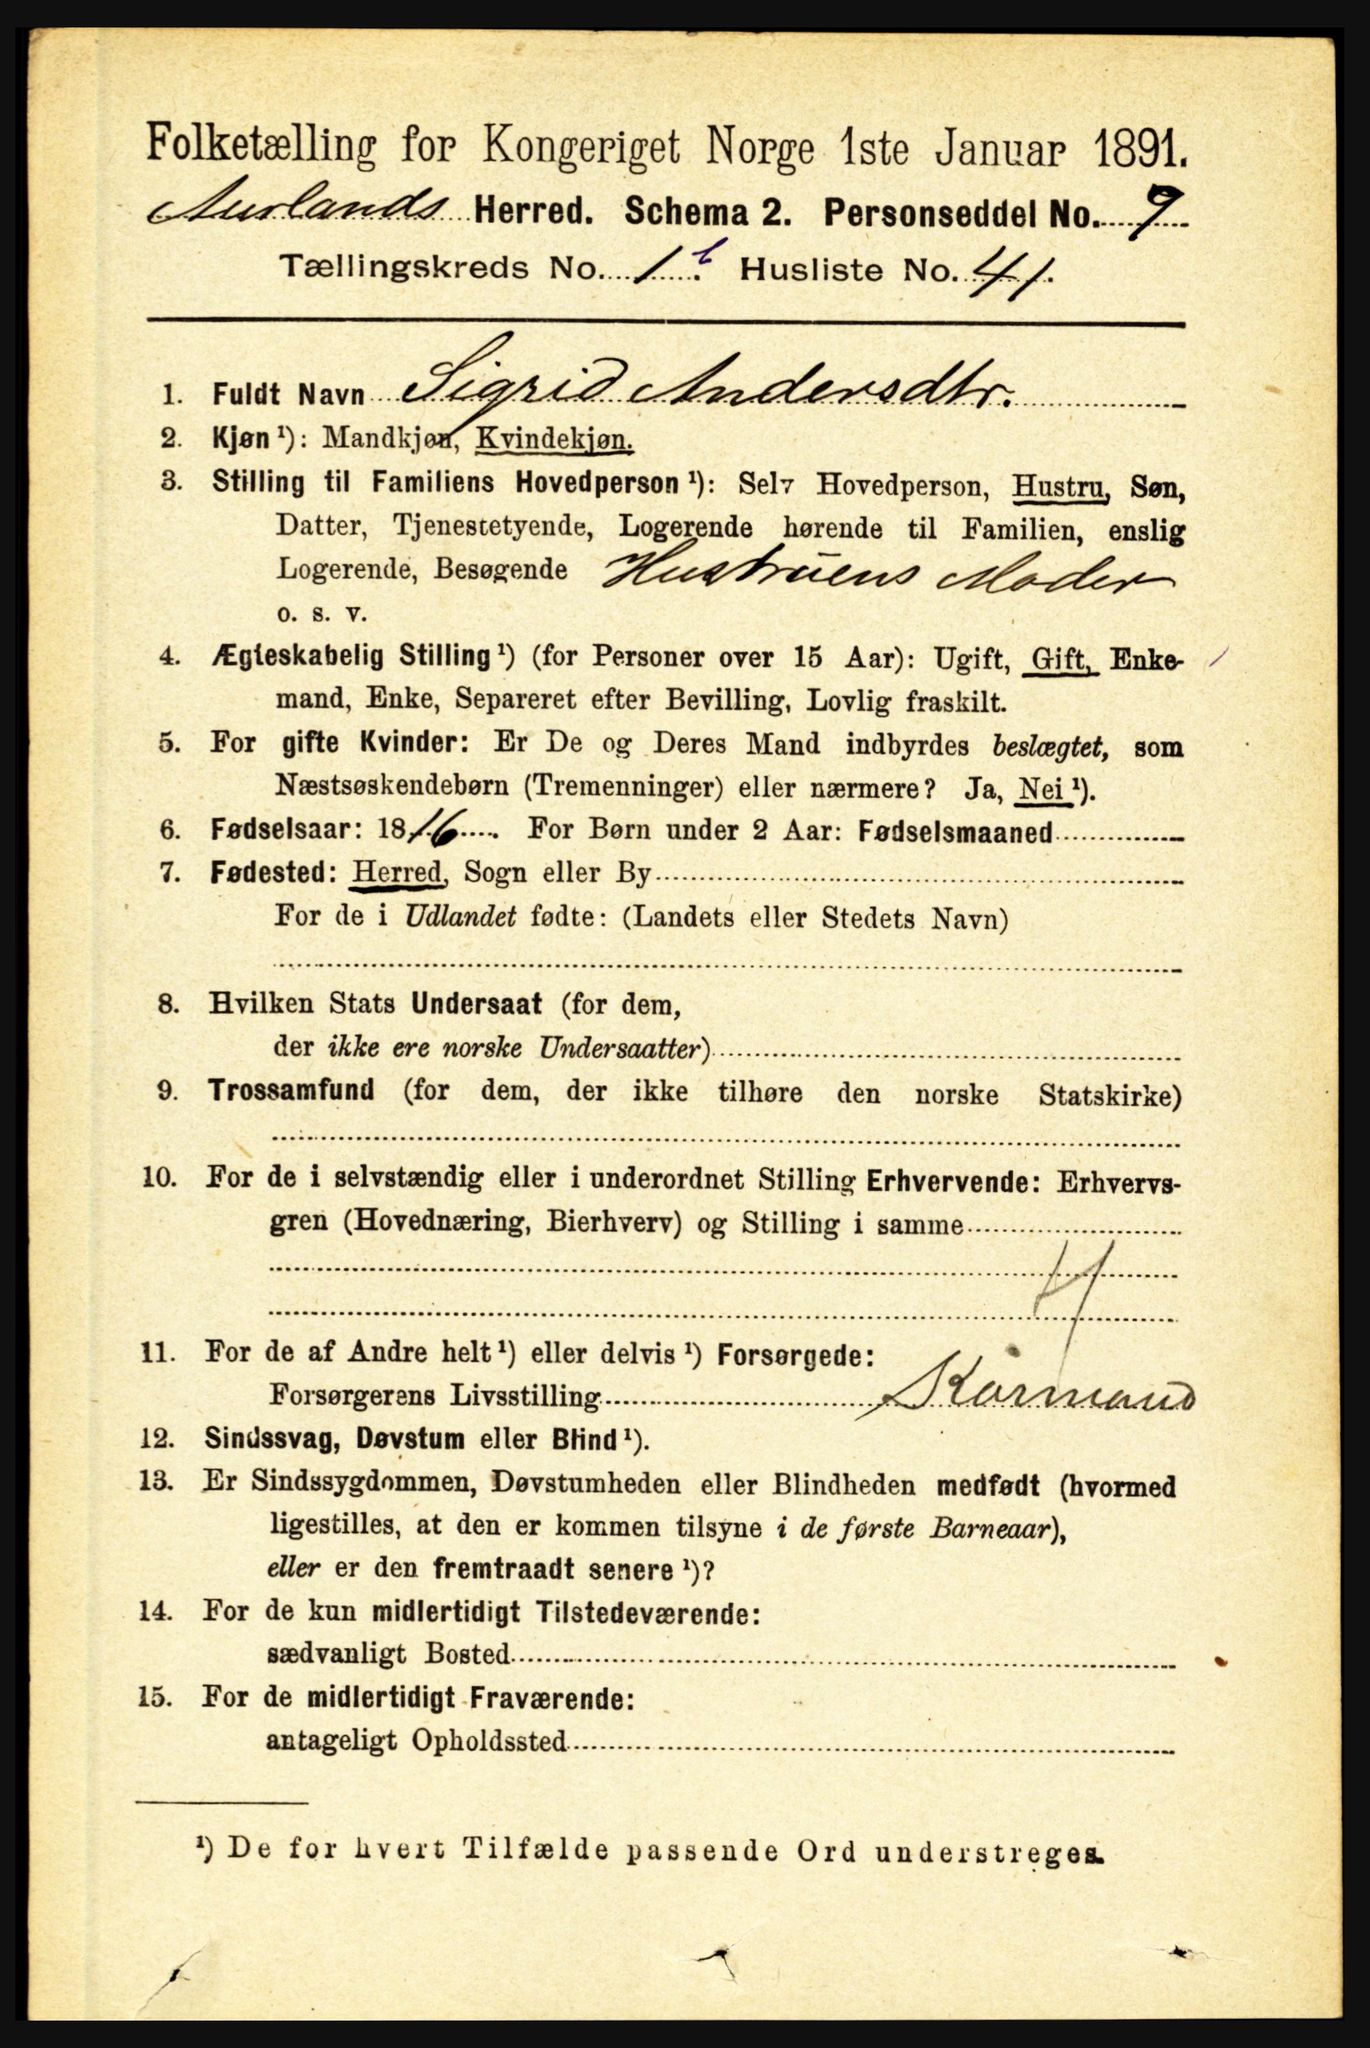 Folketælling for Kongeriget Norge 1ste Januar 1891.
Aurlands Herred. Schema 2. Personseddel No. 9
Tællingskreds No. 1 b. Husliste No. 41.
1. Fuldt Navn Sigrid Andersdtr.
2. Kjøn ¹): Mandkjøn, Kvindekjøn.
3. Stilling til Familiens Hovedperson ¹): Selv Hovedperson, Hustru, Søn,
Datter, Tjenestetyende, Logerende hørende til Familien, enslig
Logerende, Besøgende Hustruens Moder
o. s. v.
4. Ægteskabelig Stilling ¹) (for Personer over 15 Aar): Ugift, Gift, Enke-
mand, Enke, Separeret efter Bevilling, Lovlig fraskilt.
5. For gifte Kvinder: Er De og Deres Mand indbyrdes beslægtet, som
Næstsøskendebørn (Tremenninger) eller nærmere? Ja, Nei ¹).
6. Fødselsaar: 1816. For Børn under 2 Aar: Fødselsmaaned
7. Fødested: Herred, Sogn eller By
For de i Udlandet fødte: (Landets eller Stedets Navn)
8. Hvilken Stats Undersaat (for dem,
der ikke ere norske Undersaatter)
9. Trossamfund (for dem, der ikke tilhøre den norske Statskirke)
10. For de i selvstændig eller i underordnet Stilling Erhvervende: Erhvervs-
gren (Hovednæring, Bierhverv) og Stilling i samme
11. For de af Andre helt ¹) eller delvis ¹) Forsørgede:
Forsørgerens Livsstilling Kårmand
12. Sindssvag, Døvstum eller Blind ¹).
13. Er Sindssygdommen, Døvstumheden eller Blindheden medfødt (hvormed
ligestilles, at den er kommen tilsyne i de første Barneaar),
eller er den fremtraadt senere ¹)?
14. For de kun midlertidigt Tilstedeværende:
sædvanligt Bosted
15. For de midlertidigt Fraværende:
antageligt Opholdssted
¹) De for hvert Tilfælde passende Ord understreges.